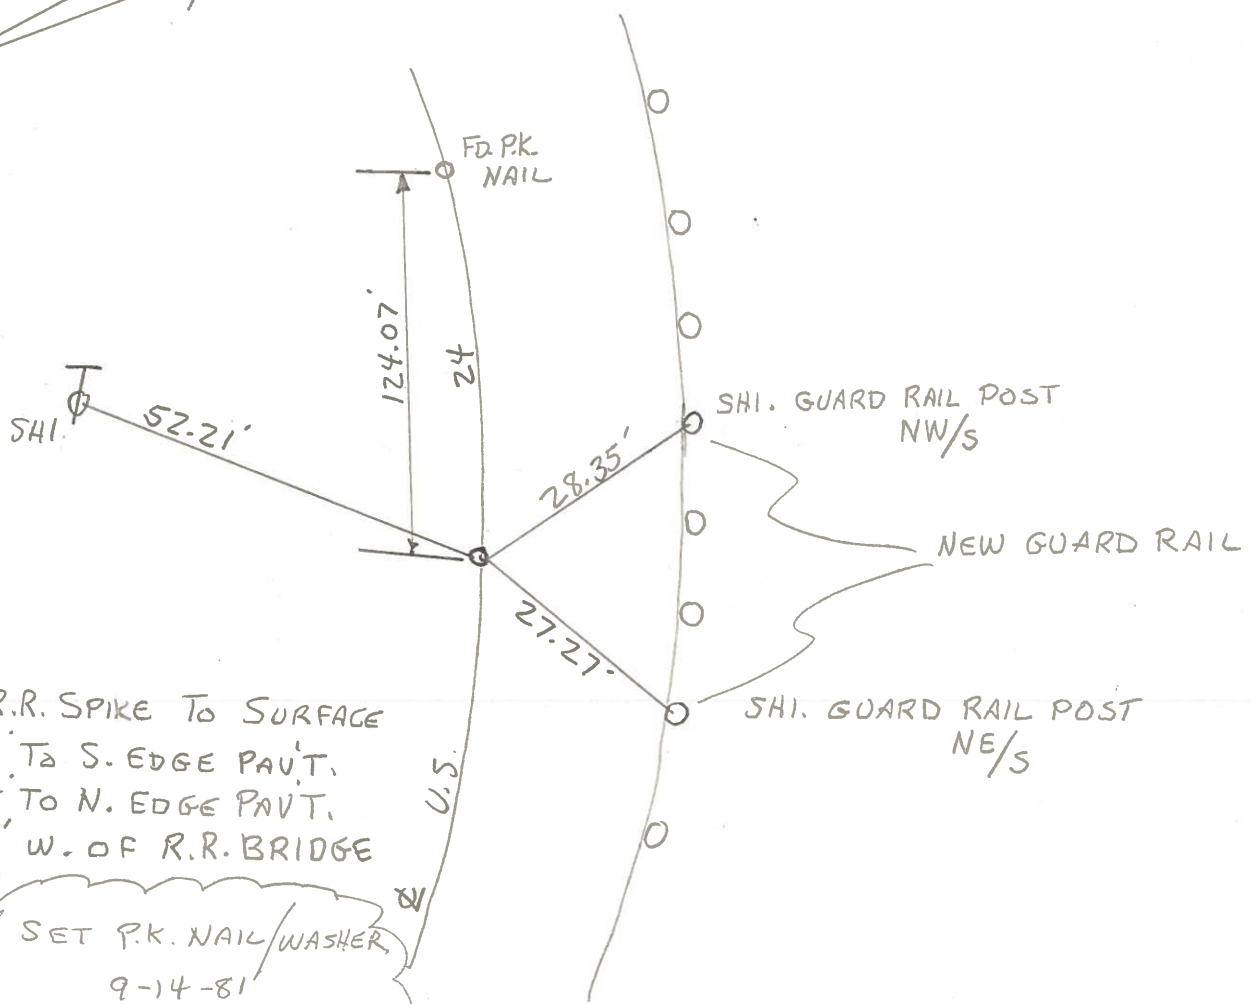 FD. P.K.
NAIL
124.07'
24
SHI.
52.21'
28.35'
SHI. GUARD RAIL POST
NW/S
NEW GUARD RAIL
27.27'
SHI. GUARD RAIL POST
NE/S
R.R. SPIKE TO SURFACE
TO S. EDGE PAV'T.
TO N. EDGE PAV'T.
W. OF R.R. BRIDGE
U.S.
℄
SET P.K. NAIL/WASHER
9-14-81